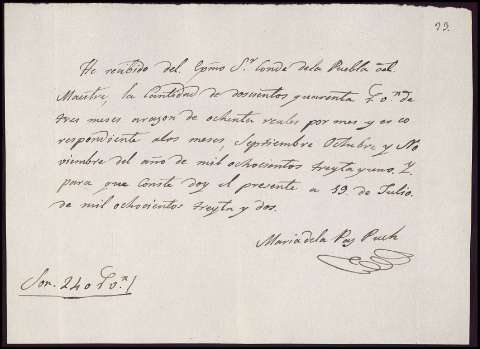 93.
He recibido del Exmo Sr Conde dela Puebla del
Maestre, la Cantidad de doscientos quarenta rs. vn de
tres meses arazon de ochenta reales por mes y es co
respondiente alos meses, Septiembre Octubre y No
viembre del año de mil ochocientos treyta y uno. Y
para que Conste doy el presente a 19 de Julio.
de mil ochocientos treyta y dos.
Maria dela Paz Puch
Son. 240 rs. vn